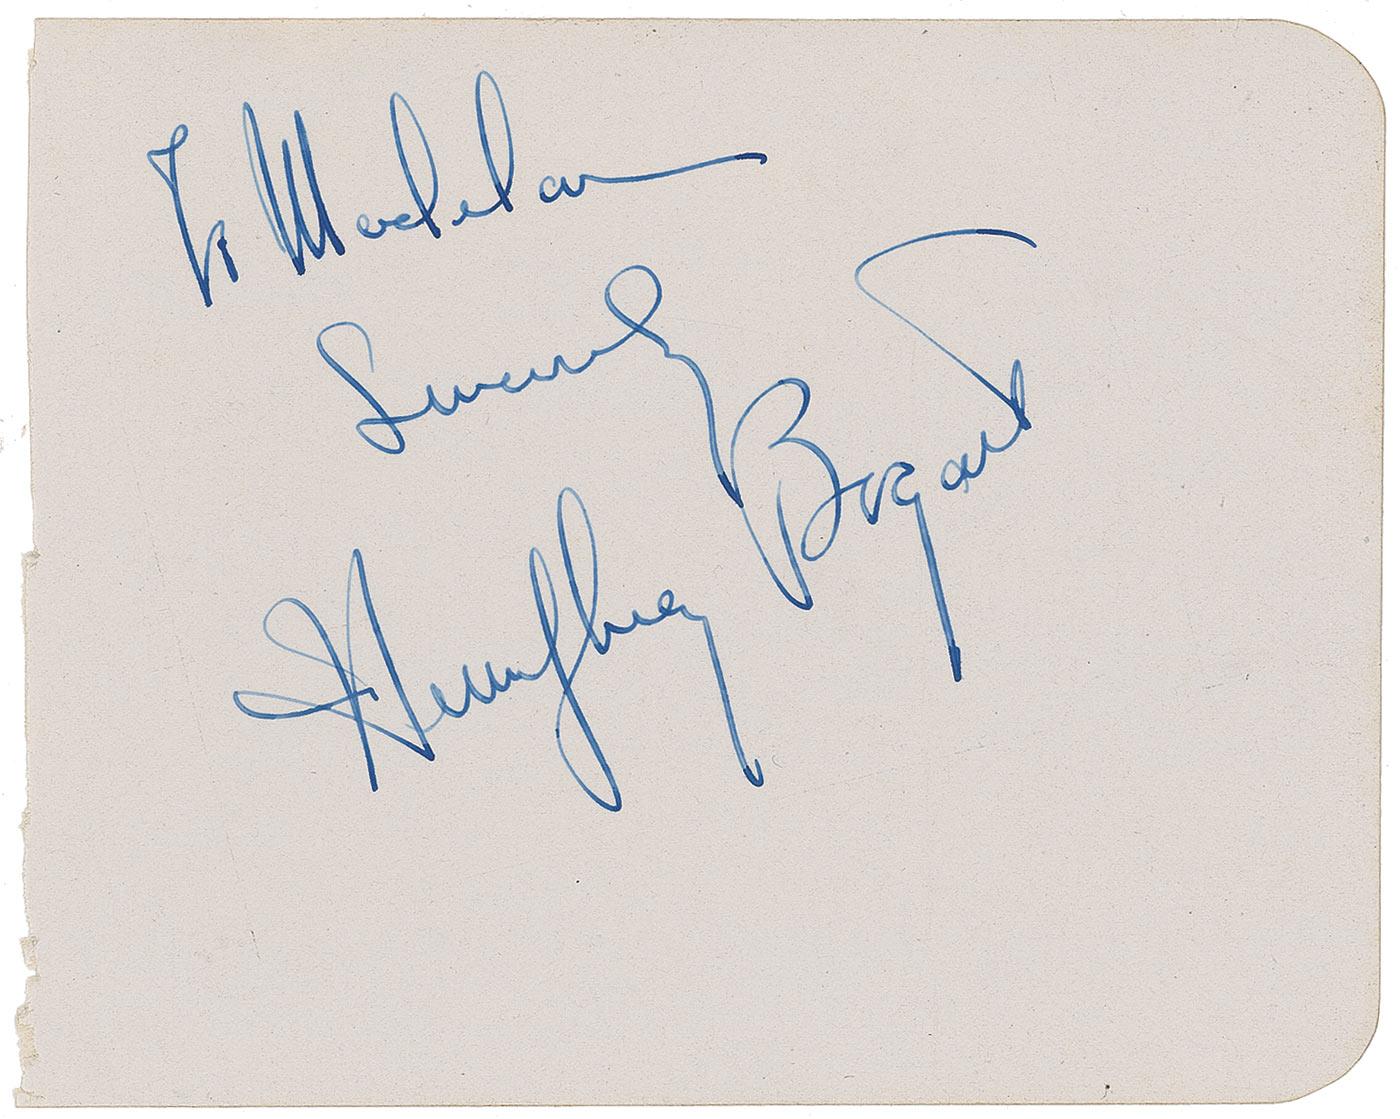 To Madelon
Sincerely
Humphrey Bogart